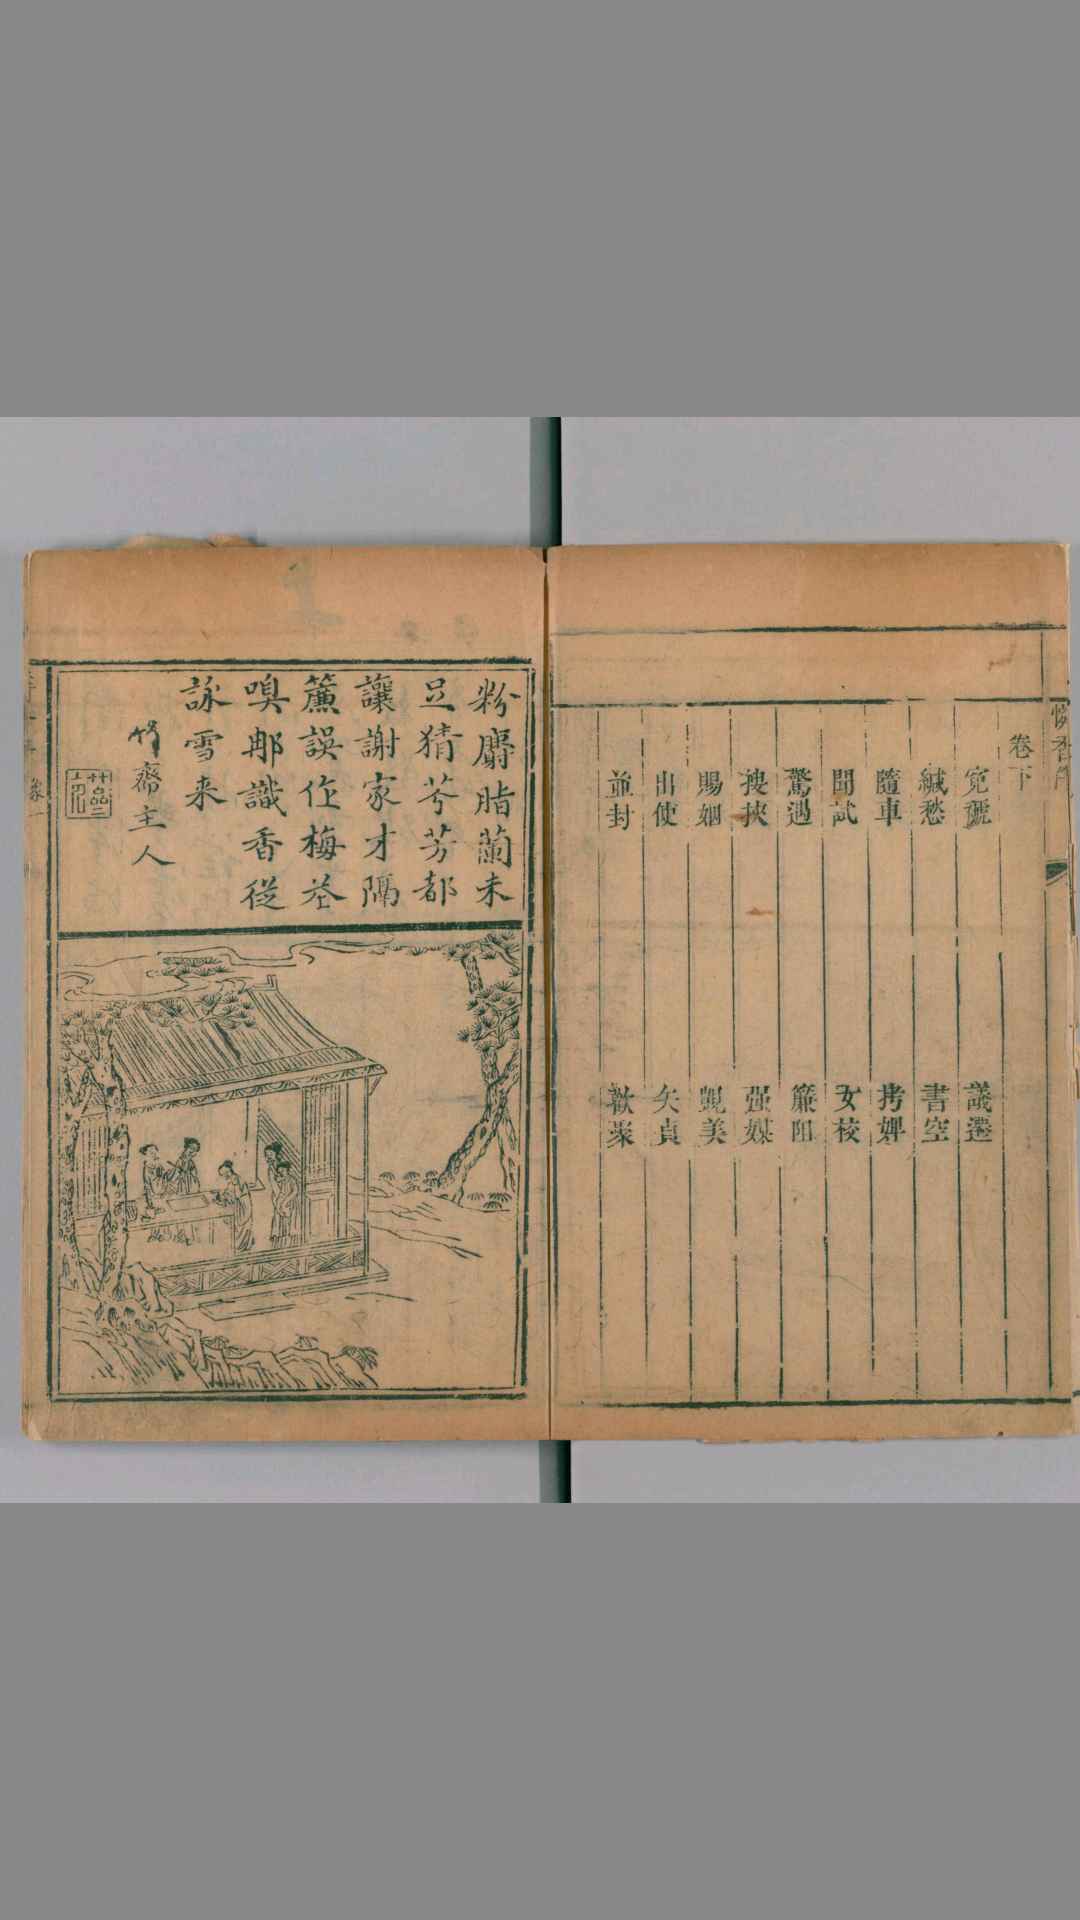 憐香伴
卷下
寃褫 議遷
緘愁 書空
隨車 拷婢
聞試 女校
驚遇 簾阻
搜挾 强媒
賜姻 覬美
出使 矢貞
並封 歡聚
粉麝脂蘭未
足猜芳都
讓謝家才隔
簾誤作梅花
嗅那識香從
詠雪来
竹齋主人